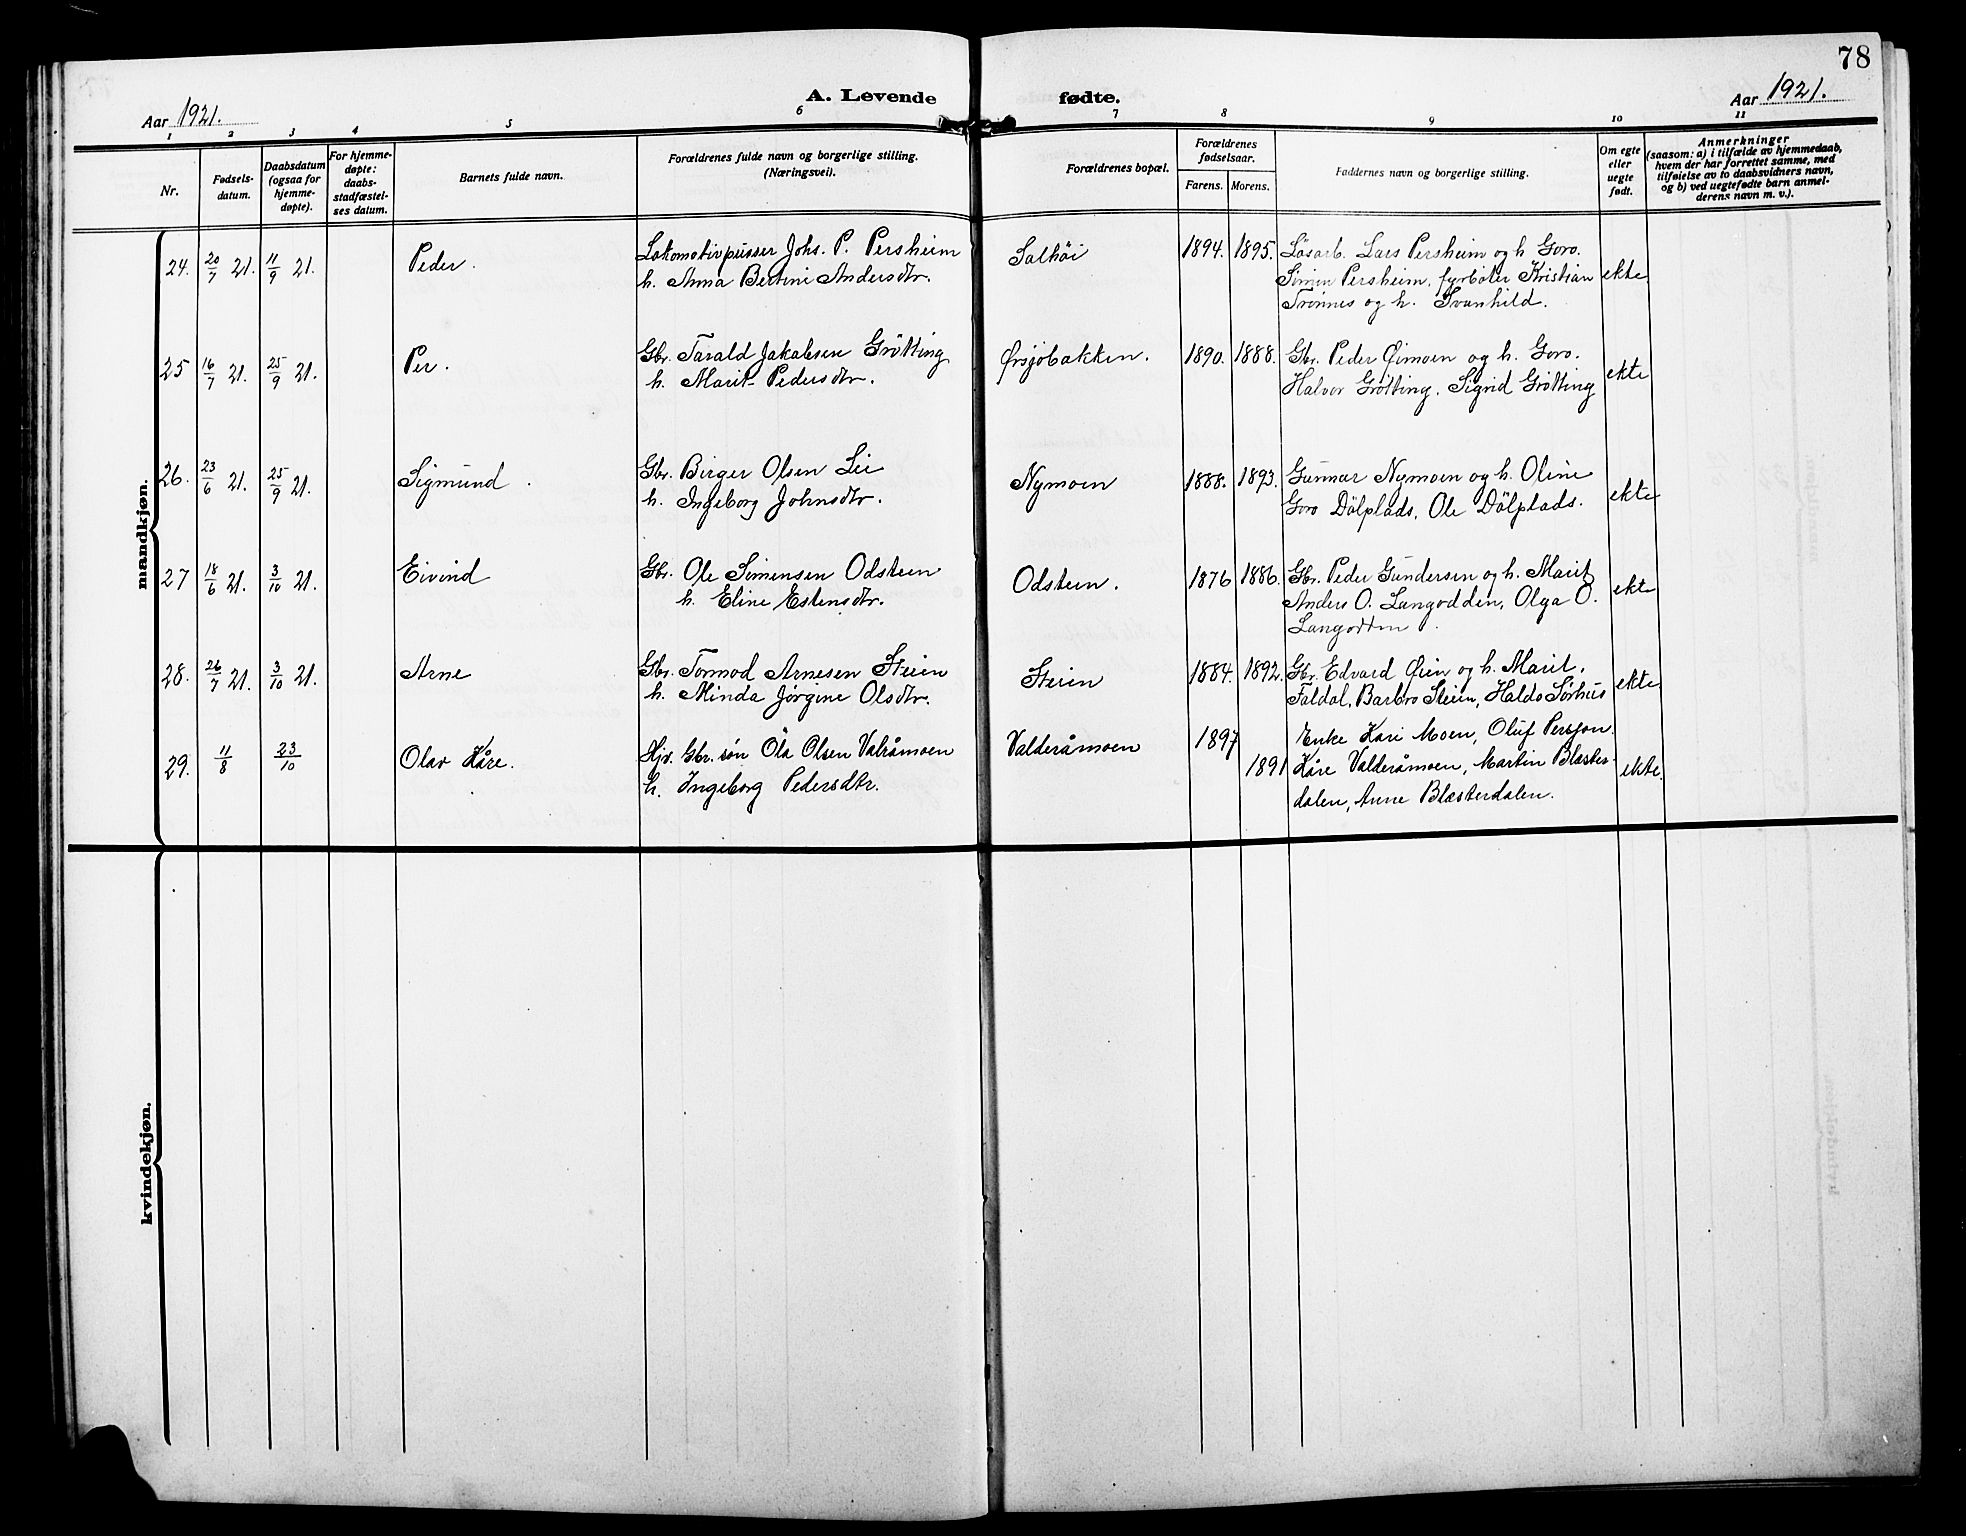 78
A. Levende fødte.
Aar 1921.
Aar 1921.
1 2 3 4 5 6 7 8 9 10 11
Nr.
Fødsels-
datum.
Daabsdatum
(ogsaa for
hjemme-
døpte).
For hjemme-
døpte:
daabs-
stadfæstel-
ses datum.
Barnets fulde navn.
Forældrenes fulde navn og borgerlige stilling.
(Næringsvei).
Forældrenes bopæl.
Forældrenes
fødselsaar.
Farens. Morens.
Faddernes navn og borgerlige stilling.
Om egte
eller
uegte
født.
Anmerkninger
(saasom: a) i tilfælde av hjemmedaab,
hvem der har forrettet samme, med
tilføielse av to daabsvidners navn,
og b) ved uegtefødte barn anmel-
derens navn m. v.).
mandkjøn.
24. 20/7 21. 11/9 21. Peder.
Lokomotivpusser Johs. P. Persheim
h. Anna Bertine Andersdtr.
Salhöi
1894. 1895.
Lösarb. Lars Persheim og h Goro.
Simen Persheim, fyrböter Kristian
Trönnes og h. Svanhild.
ekte
25 16/7 21. 25/9 21. Per.
Gbr. Tarald Jakobsen Grötting
h. Marit Pedersdtr.
Örsjöbakken.
1890. 1888.
Gbr. Peder Öimoen og h. Goro.
Halvor Grötting, Sigrid Grötting
ekte
26. 23/6 21. 25/9 21. Sigmund.
Gbr. Birger Olsen Lie
h. Ingeborg Johnsdtr.
Nymoen
1888. 1893.
Gunnar Nymoen og h. Oline
Goro Dölplads, Ole Dölplads.
ekte
27 18/6 21. 3/10 21. Eivind
Gbr. Ole Simensen Odsteen
h. Eline Estensdtr.
Odsteen.
1876 1886.
Gbr. Peder Gundersen og h. Marit
Anders O. Langodden, Olga O.
Langodden.
ekte
28. 26/7 21. 3/10 21. Arne
Gbr. Tormod Arnesen Steien
h. Minda Jörgine Olsdtr.
Steien
1884. 1892.
Gbr. Edvard Öien og h. Marit.
Faldal, Barbro Steien, Haldo Sörhus
ekte.
29. 11/8 23/10 Olav Kåre.
Hjv. Gbr. søn Ola Olsen Valråmoen
h. Ingeborg Pedersdtr.
Valderåmoen
1897
1891
Enke Kari Moen, Oluf Persjon.
Kåre Valderåmoen, Martin Blæster-
dalen, Anne Blæsterdalen.
ekte.
kvindekjøn.